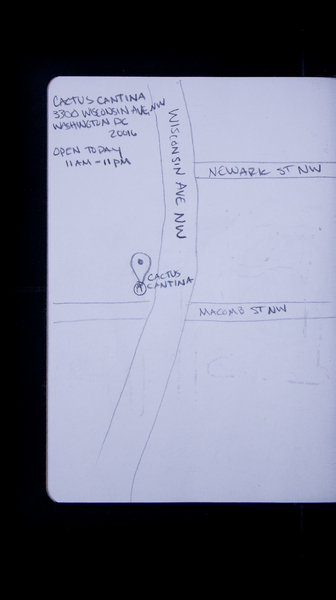 CACTUS CANTINA
3300 WISCONSIN AVE, NW
WASHINGTON DC
20016
OPEN TODAY
11AM - 11PM
WISCONSIN AVE NW
NEWARK ST NW
CACTUS
CANTINA
MACOMB ST NW